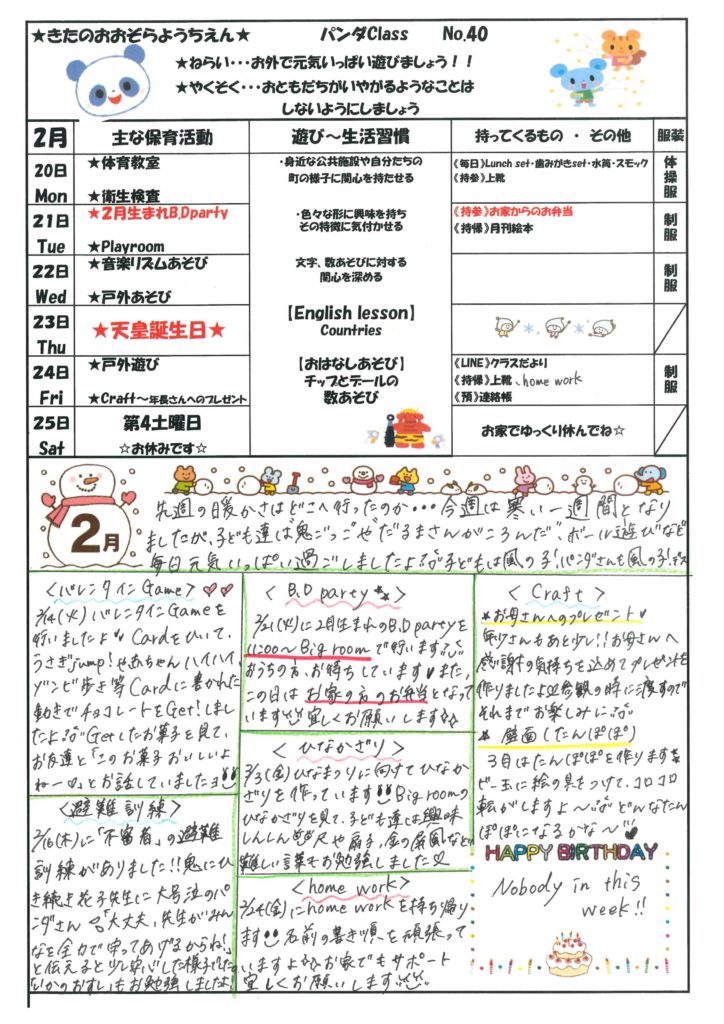 ★きたのおおぞらようちえん★ パンダClass No.40
★ねらい・・・お外で元気いっぱい遊びましょう！！
★やくそく・・・おともだちがいやがるようなことは
しないようにしましょう
2月 主な保育活動 遊び～生活習慣 持ってくるもの ・ その他 服装
20日 Mon
★体育教室
★衛生検査
・身近な公共施設や自分たちの
町の様子に関心を持たせる
《毎日》Lunch set・歯みがきset・水筒・スモック
《持参》上靴
体操服
21日 Tue
★2月生まれB.Dparty
★Playroom
・色々な形に興味を持ち
その特徴に気付かせる
《持参》お家からのお弁当
《持帰》月刊絵本
制服
22日 Wed
★音楽リズムあそび
★戸外あそび
文字、数あそびに対する
関心を深める
制服
23日 Thu
★天皇誕生日★
【English lesson】
Countries
24日 Fri
★戸外遊び
★Craft～年長さんへのプレゼント
【おはなしあそび】
チップとデールの
数あそび
《LINE》クラスだより
《持帰》上靴、home work
《預》連絡帳
制服
25日 Sat
第4土曜日
☆お休みです☆
お家でゆっくり休んでね☆
2月
先週の暖かさはどこへ行ったのか・・・今週は寒い一週間となり
ましたが、子ども達は"鬼ごっこ"や"だるまさんがころんだ"、ボール遊びなど
毎日元気いっぱい過ごしましたよ 子どもは風の子！パンダさんも風の子！デス
<バレンタインGame>
2/14(火)バレンタインGameを
行いましたよ Cardをひいて、
うさぎjump！や赤ちゃんハイハイ、
ゾンビ歩き等Cardに書かれた
動きでチョコレートをGet！しまし
たよ Getしたお菓子を見て、
お友達と「このお菓子おいしいよ
ねー♡」とお話していましたヨ
<避難訓練>
2/16(木)に「不審者」の避難
訓練がありました！！鬼にひ
き続き花子先生に大号泣のパ
ンダさん 「大丈夫、先生がみん
なを全力で守ってあげるからね！」
と伝えると少し安心した様子でした
いかのおすしもお勉強しましたよ
<B.D party>
2/21(火)に2月生まれのB.D partyを
11:00～Big roomで行います
おうちの方、お待ちしています また、
この日はお家の方のお弁当となって
います 宜しくお願いします
<ひなかざり>
3/3(金)ひなまつりに向けてひなか
ざりを作っています！！Big roomの
ひなかざりを見て、子ども達は興味
しんしん 尺や扇子、金の屏風など
難しい言葉もお勉強しました
<home work>
2/24(金)にhome workを持ち帰り
ます！！名前の書き順を頑張って
いますよ お家でもサポート
宜しくお願いします
<Craft>
*お母さんへのプレゼント
年少さんもあと少し！！お母さんへ
感謝の気持ちを込めてプレゼントを
作りましたよ 参観の時に渡すので
それまでお楽しみに
*壁面(たんぽぽ)
3月はたんぽぽを作ります
ビー玉に絵の具をつけて、コロコロ
転がしますよ～ どんなたん
ぽぽになるかな～
HAPPY BIRTHDAY
Nobody in this
week!!